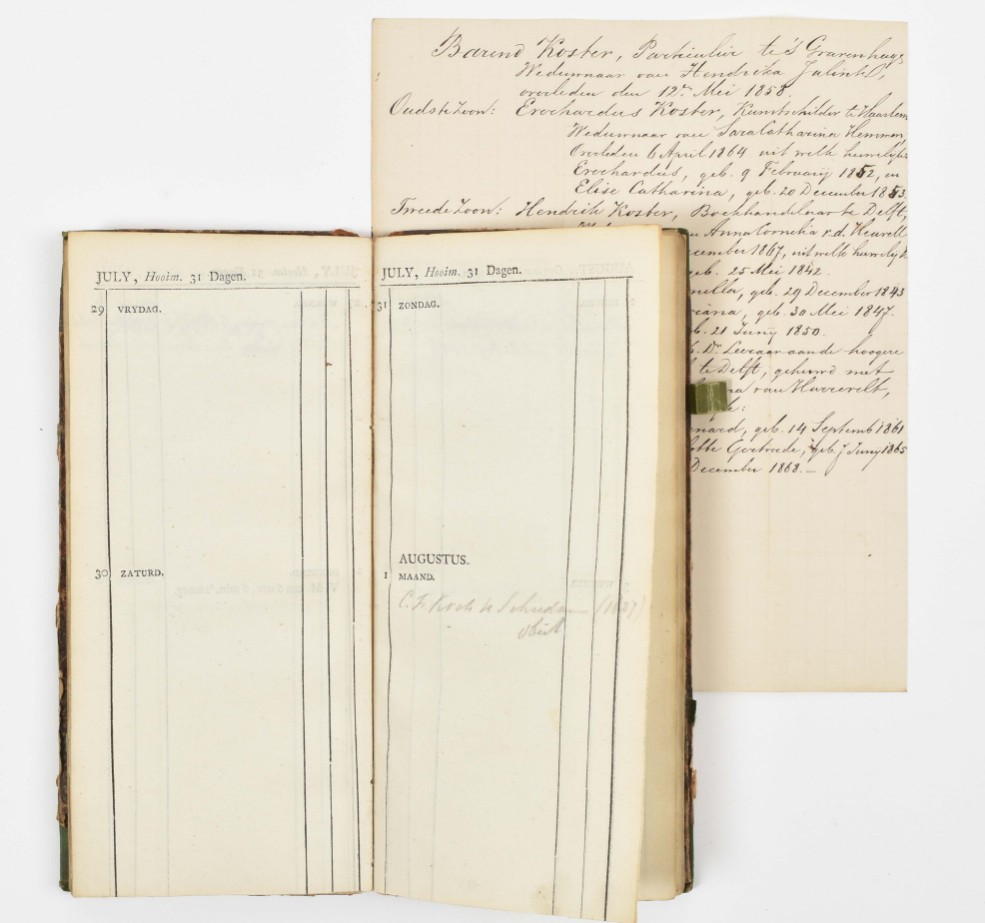 Barend Koster, Particulier te 's Gravenhage
Weduwnaar van Hendrika
overleden den 12n Mei 1858.
Oudste Zoon: Everhardus Koster, Kunstschilder te Haarlem
Weduwnaar van Sara Catharina Hemmen,
Overleden 6 April 1864 uit welk huwelijk
Everhardus, geb. 9 Februarij 1852, en
Elise Catharina, geb. 20 December 1853
Tweede Zoon: Hendrik Koster, Boekhandelaar te Delft,
Anna Cornelia v.d. Heuvell
cember 1867, uit welk huwelijk
geb. 25 Mei 1842.
nella, geb. 29 December 1843
iana, geb. 30 Mei 1847.
b. 21 Junij 1850.
Dr. Leeraar aan de hoogere
te Delft, gehuwd met
na van
nard, geb. 14 Septemb 1861
otte Gertrude, geb. Junij 1865
December 1868.—
JULY, Hooim. 31 Dagen.
29 VRYDAG.
30 ZATURD.
JULY, Hooim. 31 Dagen.
31 ZONDAG.
AUGUSTUS.
1 MAAND.
C. F. Koch te Schiedam (1827)
obiit